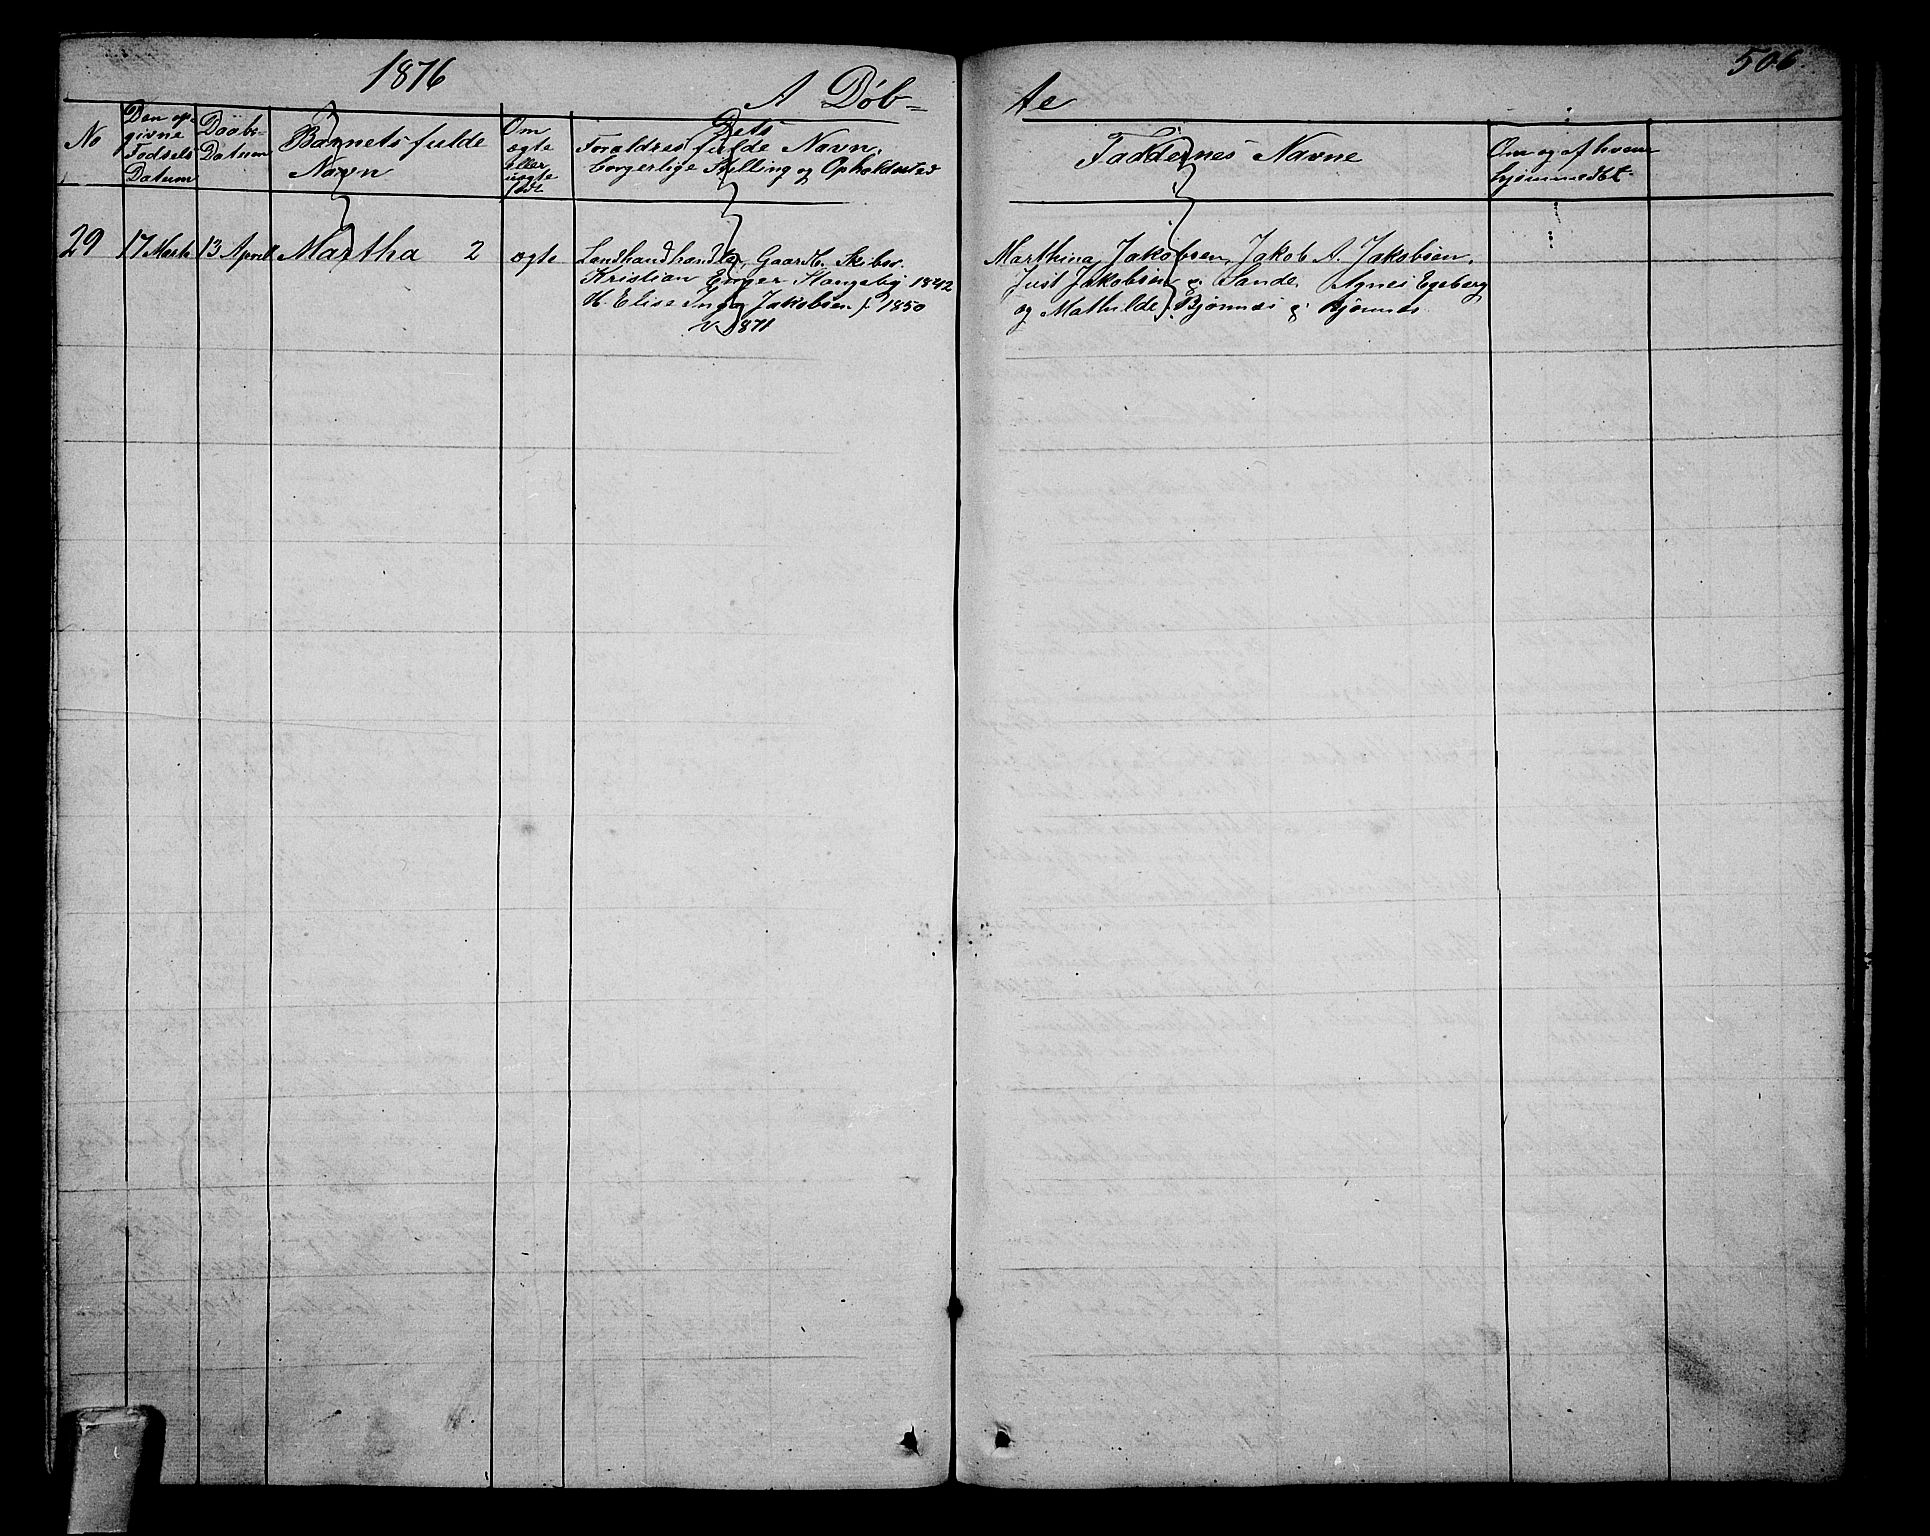 1876
506.
A Döb=
te
No
Den op=
givne
Fødsels
Datum
Daabs=
Datum
Barnets fulde
Navn
Om
ægte
eller
uægte
født
Dets
Forældres fulde Navn,
borgerlige Stilling og Opholdssted
Faddernes Navne
Om og af hvem
hjemmedøbt
29
17 Marts
13 April
Martha 2
ægte
Landhandler
Kristian Enger Stangeby 1842
H. Elise Inga Jakobsen f. 1850
v. 1871
Marthina Jakobsen, Jakob A. Jakobsen,
Just Jakobsen Sande, Agnes Egeberg
og Mathilde Bjørnnæs